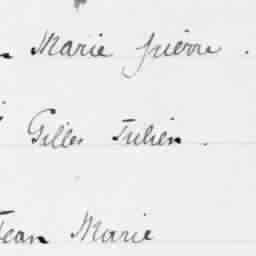 Marie pierre.
Gilles Julien.
Jean Marie